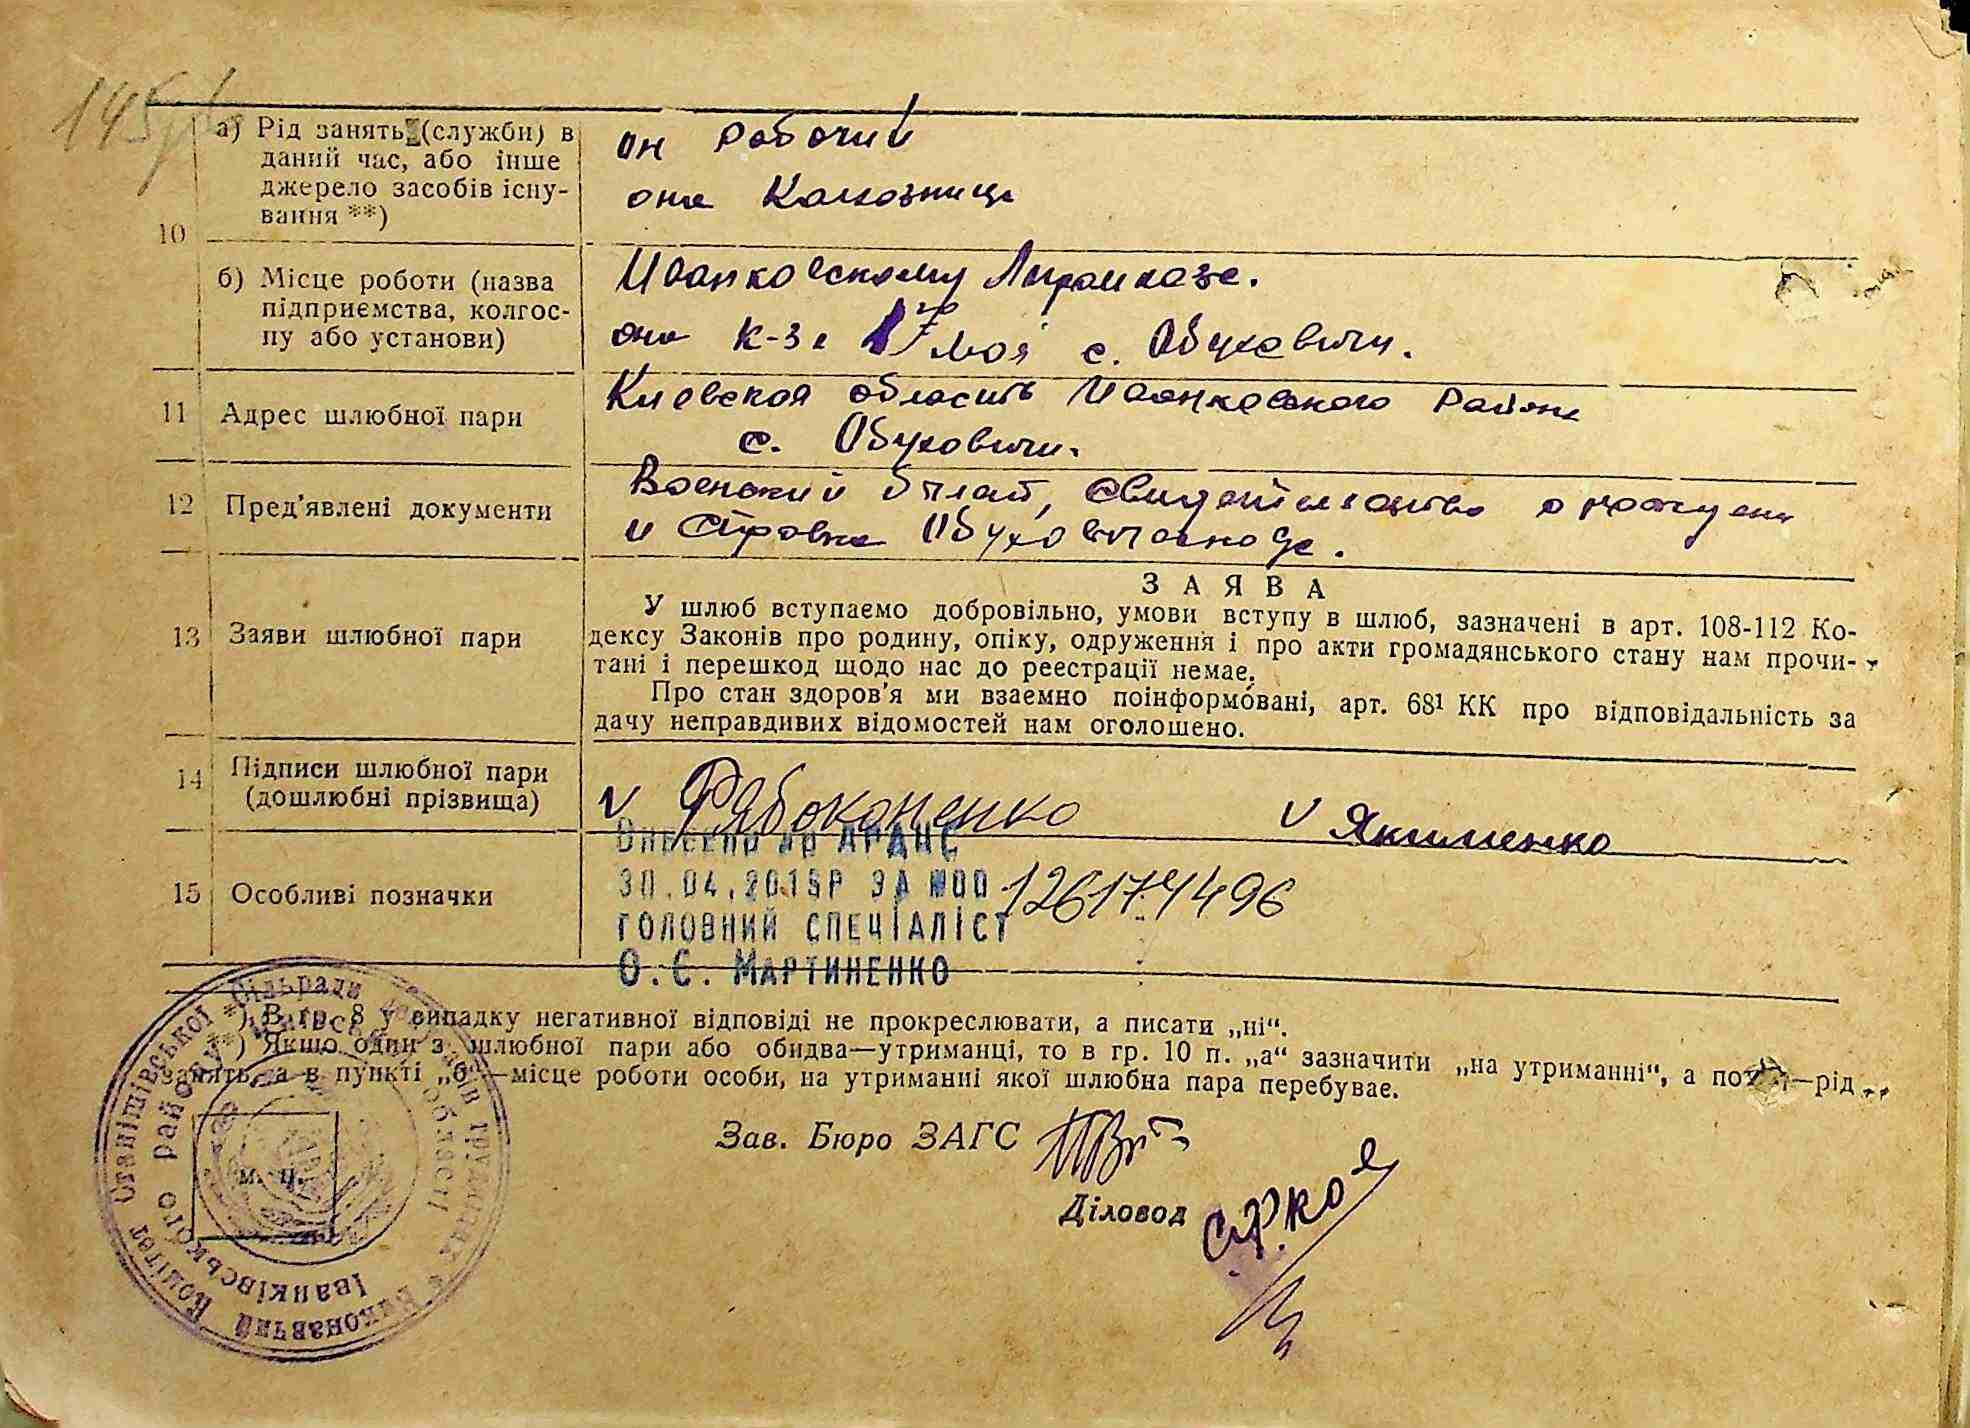 145
10
а) Рід занять (служби) в
даний час, або інше
джерело засобів існу-
вання **)
он рабочий
она Колхозница
б) Місце роботи (назва
підприємства, колгос-
пу або установи)
Иванковскому
она к-з 1го Мая с. Обуховичи.
11 Адрес шлюбної пари
Киевская область Иванковского Района
с. Обуховичи.
12 Пред'явлені документи
Военский билет, Свидетельство о
и Справка
13 Заяви шлюбної пари
ЗАЯВА
У шлюб вступаемо добровільно, умови вступу в шлюб, зазначені в арт. 108-112 Ко-
дексу Законів про родину, опіку, одруження і про акти громадянського стану нам прочи-
тані і перешкод щодо нас до реестрації немае.
Про стан здоров'я ми взаемно поінформовані, арт. 68¹ КК про відповідальність за
дачу неправдивих відомостей нам оголошено.
14 Підписи шлюбної пари
(дошлюбні прізвища)
v Рябоконенко v Якименко
15 Особливі позначки
Внесено до ДРАЦС
30.04.2015Р ЗА №00 126174496
ГОЛОВНИЙ СПЕЦІАЛІСТ
О.Є. МАРТИНЕНКО
*) В гр. 8 у випадку негативної відповіді не прокреслювати, а писати „ні“.
**) Якщо один з шлюбної пари або обидва—утриманці, то в гр. 10 п. „а“ зазначити „на утриманні“, а —рід
занять, а в пункті „б“—місце роботи особи, на утриманні якої шлюбна пара перебувае.
Зав. Бюро ЗАГС
Діловод
м. п.
Виконавчий Комітет сільради депутатів трудящих
Іванківського району Київської області